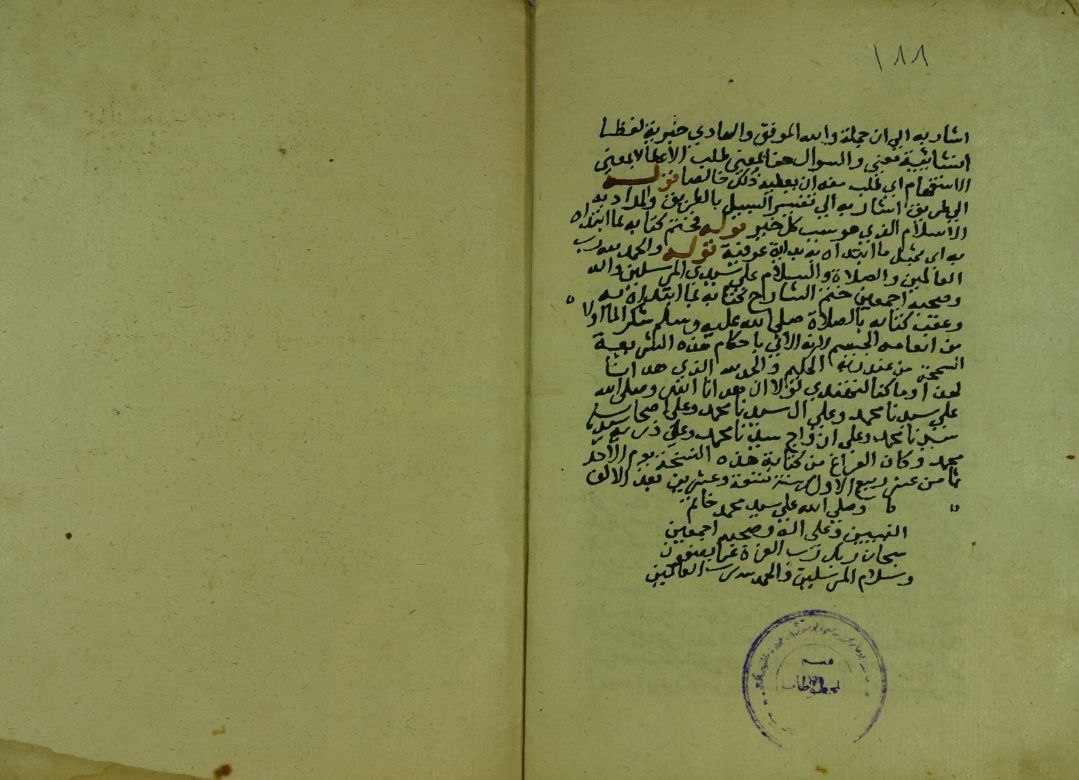 ١٨٨
اشار به الي ان جملة والله الموفق والهادي خبرية لفظا
انشائية معني والسوال هنا بمعني طلب الاعطا لا بمعني
الاستفهام اي طلب منه ان يعطيه ذلك خالصا قوله
الي طريق اشار به الي تفسير السبيل بالطريق والمراد به
الاسلام الذي هو سبب كل خير قوله فختم كتابه بما ابتداه
به اي بمثل ما ابتداه به بداية عرفية قوله والحمد لله رب
العالمين والصلاة والسلام علي سيدي المرسلين واله
وصحبه اجمعين ختم الشارح كتابه بما ابتداه به
وعقب كتابه بالصلاة صلي الله عليه وسلم شكرا لما اولاه
من انعامه الجسيم لانه الاتي باحكام هذه الشريعة
السمحة من عند ربه الحكيم والحمد لله الذي هدانا
لهذا وما كنا لنهتدي لولا ان هدانا الله وصلي الله
علي سيدنا محمد وعلي ال سيدنا محمد وعلي اصحاب
سيدنا محمد وعلي ازواج سيدنا محمد وعلي ذرية سيدنا
محمد وكان الفراغ من كتابة هذه النسخة يوم الاحد
ثامن عشر ربيع الاول سنة تسعة وعشرين بعد الالف
وصلي الله علي سيد محمد خاتم
النبيين وعلي اله وصحبه اجمعين
سبحان ربك رب العزة عما يصفون
وسلام المرسلين والحمد لله رب العالمين
قسم
المخطوطات